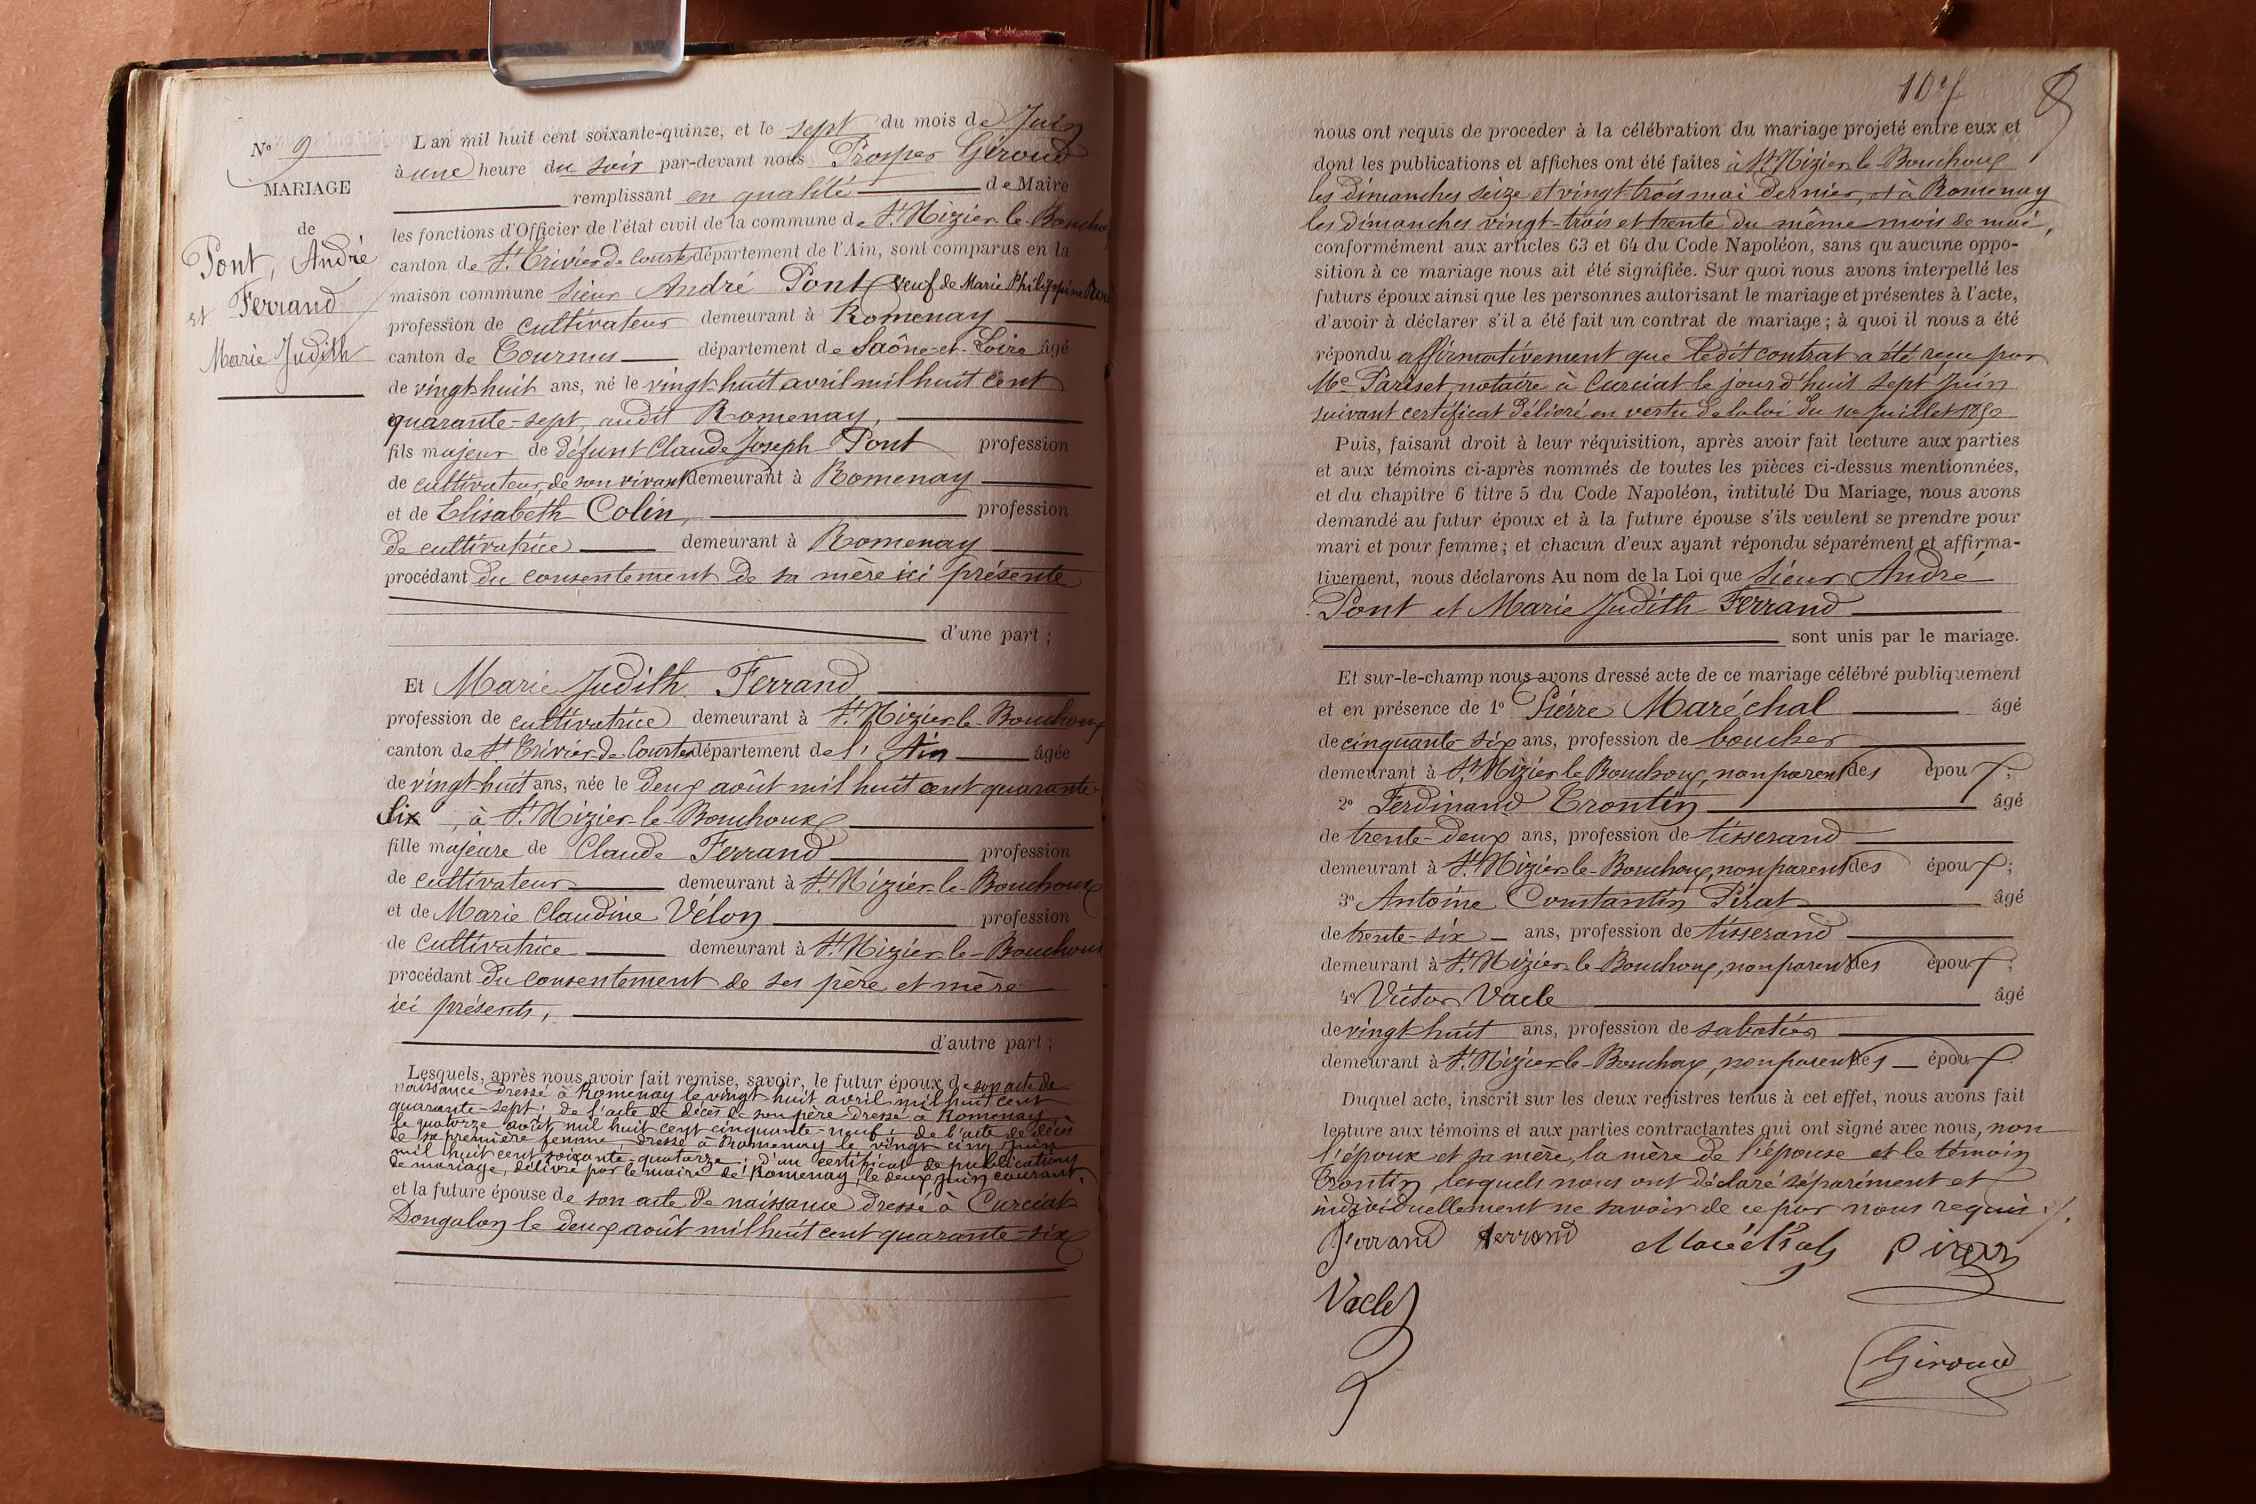 N° 9
MARIAGE
de
Pont, André
et Ferrand
Marie Judith
L'an mil huit cent soixante-quinze, et le sept du mois de Juin
à une heure du soir par-devant nous Prosper Giroud
remplissant en qualité de Maire
les fonctions d'Officier de l'état civil de la commune de St Nizier-le-Boucho
canton de St Trivier de Courtes département de l'Ain, sont comparus en la
maison commune Sieur André Pont veuf de Marie Philippine
profession de cultivateur demeurant à Romenay
canton de Tournus département de Saône-et-Loire âgé
de vingt-huit ans, né le vingt-huit avril mil huit cent
quarante-sept, audit Romenay,
fils majeur de défunt Claude Joseph Pont profession
de cultivateur, de son vivant demeurant à Romenay
et de Elisabeth Colin, profession
de cultivatrice demeurant à Romenay
procédant du consentement de sa mère ici présente
d'une part ;
Et Marie Judith Ferrand
profession de cultivatrice demeurant à St Nizier-le-Bouchoux
canton de St Trivier-de-Courtes département de l'Ain âgée
de vingt-huit ans, née le deux août mil huit cent quarante-
six, à St Nizier-le-Bouchoux
fille majeure de Claude Ferrand profession
de cultivateur demeurant à St Nizier-le-Bouchoux
et de Marie Claudine Vélon profession
de cultivatrice demeurant à St Nizier-le-Bouchoux
procédant du consentement de ses père et mère
ici présents,
d'autre part ;
Lesquels, après nous avoir fait remise, savoir, le futur époux de son acte de
naissance dressé à Romenay le vingt-huit avril mil huit cent
quarante-sept ; de l'acte de décès de son père dressé à Romenay
le quatorze août mil huit cent cinquante-neuf ; de l'acte de décès
de sa première femme dressé à Romenay le vingt cinq juin
mil huit cent soixante-quatorze ; d'un certificat de publications
de mariage, délivré par le maire de Romenay, le deux juin courant,
et la future épouse de son acte de naissance dressé à Curciat-
Dongalon le deux août mil huit cent quarante-six
nous ont requis de procéder à la célébration du mariage projeté entre eux et
dont les publications et affiches ont été faites à St Nizier-le-Bouchoux
les dimanches seize et vingt-trois mai dernier, et à Romenay
les dimanches vingt-trois et trente du même mois de mai,
conformément aux articles 63 et 64 du Code Napoléon, sans qu'aucune oppo-
sition à ce mariage nous ait été signifiée. Sur quoi nous avons interpellé les
futurs époux ainsi que les personnes autorisant le mariage et présentes à l'acte,
d'avoir à déclarer s'il a été fait un contrat de mariage ; à quoi il nous a été
répondu affirmativement que ledit contrat a été reçu par
Me Pariset, notaire à Curciat le jourd'huit sept Juin
suivant certificat délivré en vertu de la loi du 10 juillet 1850
Puis, faisant droit à leur réquisition, après avoir fait lecture aux parties
et aux témoins ci-après nommés de toutes les pièces ci-dessus mentionnées,
et du chapitre 6 titre 5 du Code Napoléon, intitulé Du Mariage, nous avons
demandé au futur époux et à la future épouse s'ils veulent se prendre pour
mari et pour femme ; et chacun d'eux ayant répondu séparément et affirma-
tivement, nous déclarons Au nom de la Loi que Sieur André
Pont et Marie Judith Ferrand
sont unis par le mariage.
Et sur-le-champ nous avons dressé acte de ce mariage célébré publiquement
et en présence de 1° Pierre Maréchal âgé
de cinquante-six ans, profession de boucher
demeurant à St Nizier le Bouchoux, non parent des époux ;
2° Ferdinand Trontin âgé
de trente-deux ans, profession de tisserand
demeurant à St Nizier-le-Bouchoux, non parent des époux ;
3° Antoine Constantin Pirat âgé
de trente-six ans, profession de tisserand
demeurant à St Nizier-le-Bouchoux, non parent des époux ;
4° Victor Vacle âgé
de vingt-huit ans, profession de sabotier
demeurant à St Nizier-le-Bouchoux, non parent des époux
Duquel acte, inscrit sur les deux registres tenus à cet effet, nous avons fait
lecture aux témoins et aux parties contractantes qui ont signé avec nous, non
l'époux et sa mère, la mère de l'épouse et le témoin
Trontin, lesquels nous ont déclaré séparément et
individuellement ne savoir de ce par nous requis ./.
Ferrand ferrand Maréchal Pirat
Vacle
Giroud